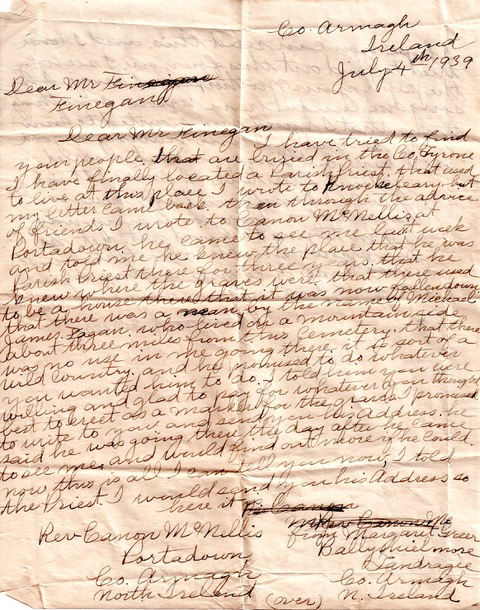 Co. Armagh
Ireland
July 4th 1939
Dear Mr Finegan
Finegan
Dear Mr Finegan
I have tried to find
your people that are buried in the Co. Tyrone
I have finally located a Parish Priest. that used
to live at this place I wrote to Knockcleary. but
my letter came back. then through the advice
of friends I wrote to Canon McNellis at
Portadown. he came to see me last week
and told me he knew the place that he was
Parish Priest there for three years, that he
knew where the graves were. that there used
to be a house there that it was now fallen down
that there was a man by the name of Michael
James Fagan who lived on a mountain side
about three miles from this Cemetery. that there
was no use in me going there, it is sort of a
wild Country. and he promised to do whatever
you wanted him to do. I told him you were
willing and glad to pay for whatever you thought
best to erect as a marker for the graves I promised
to write to you and send you his Address. he
said he was going there the day after he came
to see me, and would find out more if he could.
now this is all I can tell you now, I told
the Priest. I would send you his Address so
here it is
Rev Canon McNellis
Portadown
Co. Armagh
North Ireland
(over)
from Margaret Greer
Ballyniel more
Tandragee
Co. Armagh
N. Ireland